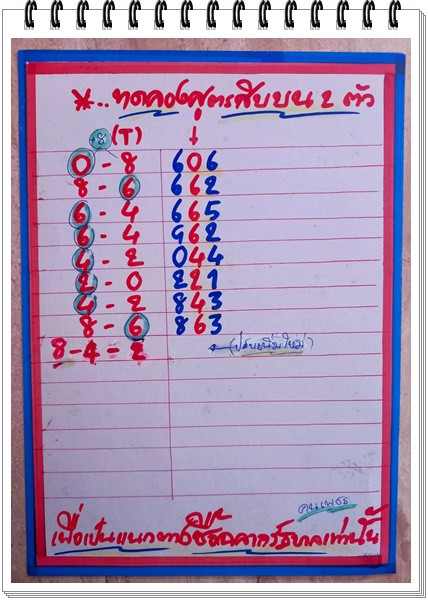 *..ทดลองสูตรสิบบน 2 ตัว
+8 (T) ↓
0 - 8 606
8 - 6 662
6 - 4 665
6 - 4 962
4 - 2 044
2 - 0 221
4 - 2 843
8 - 6 863
8 - 4 - 2
คนเพชร
เพื่อเป็นแนวทางซื้อสลากรัฐบาลเท่านั้น